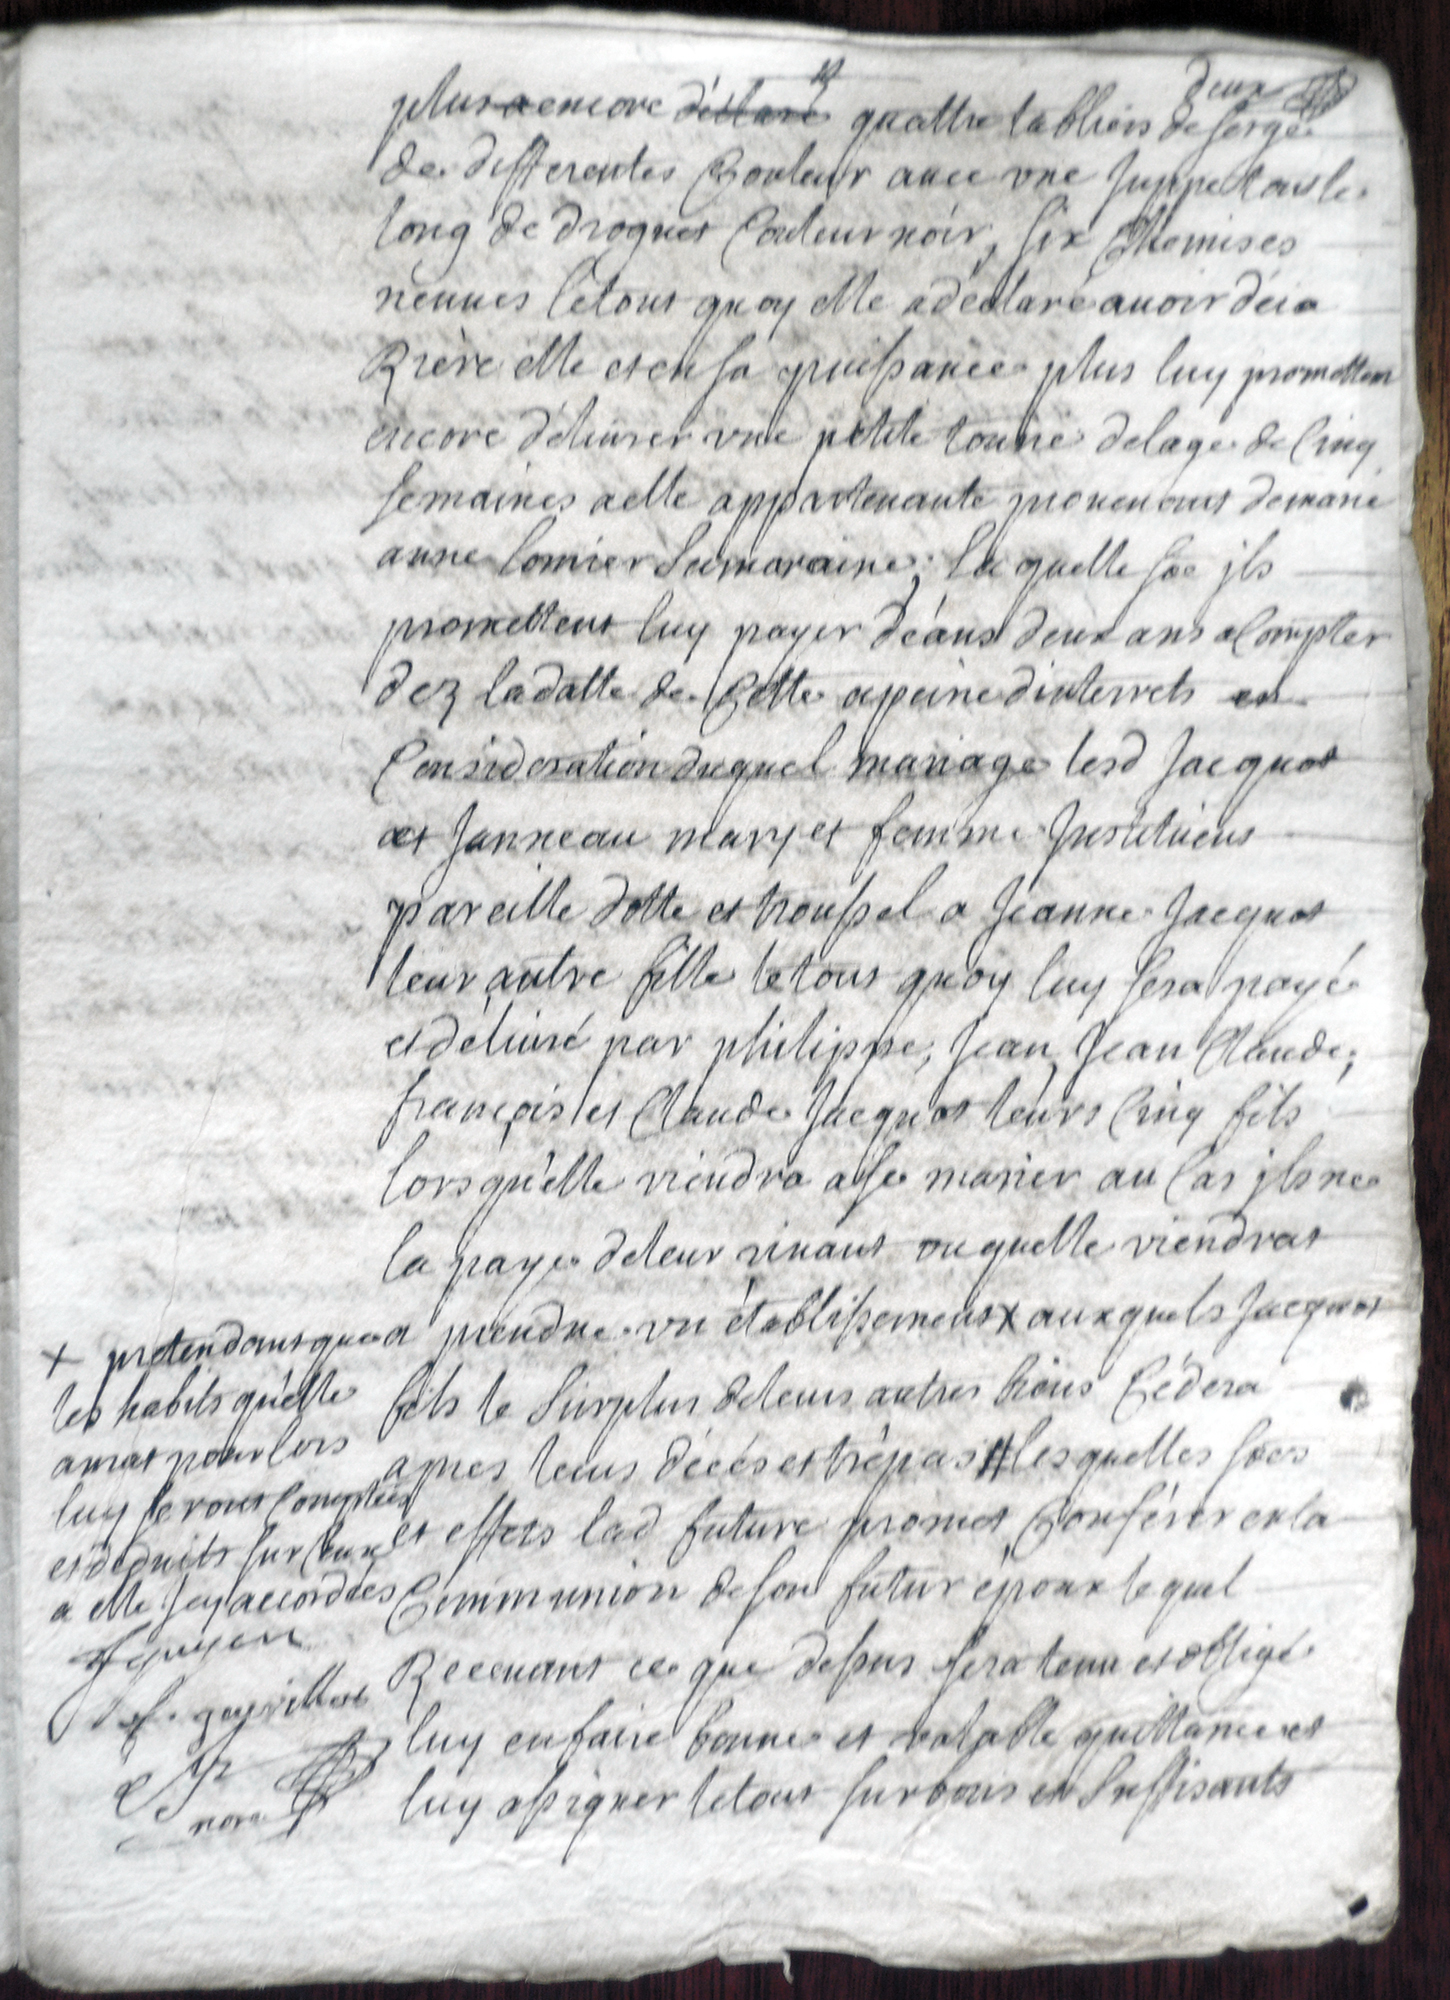 deux
plus encore déclaré quattre tabliers de serge
de differentes Couleur auec vne juppe tout le
long de droguet Couleur noir, six Chemises
neuues le tout quoy elle a déclaré auoir déia
Rière elle et en sa puissance plus luy promettent
encore déliurer vne petite taure delage de Cinq
semaines a elle appartenante prouenant de marie
anne sa maraine; la quelle soe jls
promettent luy payer déans deux ans a Compter
dez la datte de Cette a peine dinterrets en
Consideration duquel mariage lesd Jacquot
et Janneau mary et femme Jnstituent
pareille dotte et troussel a Jeanne Jacquot
leur autre fille le tout quoy luy sera payé
et déliuré par philippe, Jean, Jean Claude,
françois et Claude Jacquot leurs Cinq fils
lorsqu'elle viendra a se marier au Cas jls ne
la paye de leur viuant ou quelle viendrat
a prendre vn établissement x auxquels Jacquot
fils le Surplus de leurs autres biens Cédera
apres leurs décés et trépas # lesquelles soes
et effets lad future promet Conférer en la
Communion de son futur époux lequel
Receuant ce que dessus sera tenu et obligé
luy en faire bonne et valable quittance et
luy assigner le tout sur bons et Suffisants
x pretendant que
les habits qu'elle
aurat pour lors
luy seront Comptées
et déduits sur Ceux
a elle Jcy accordées